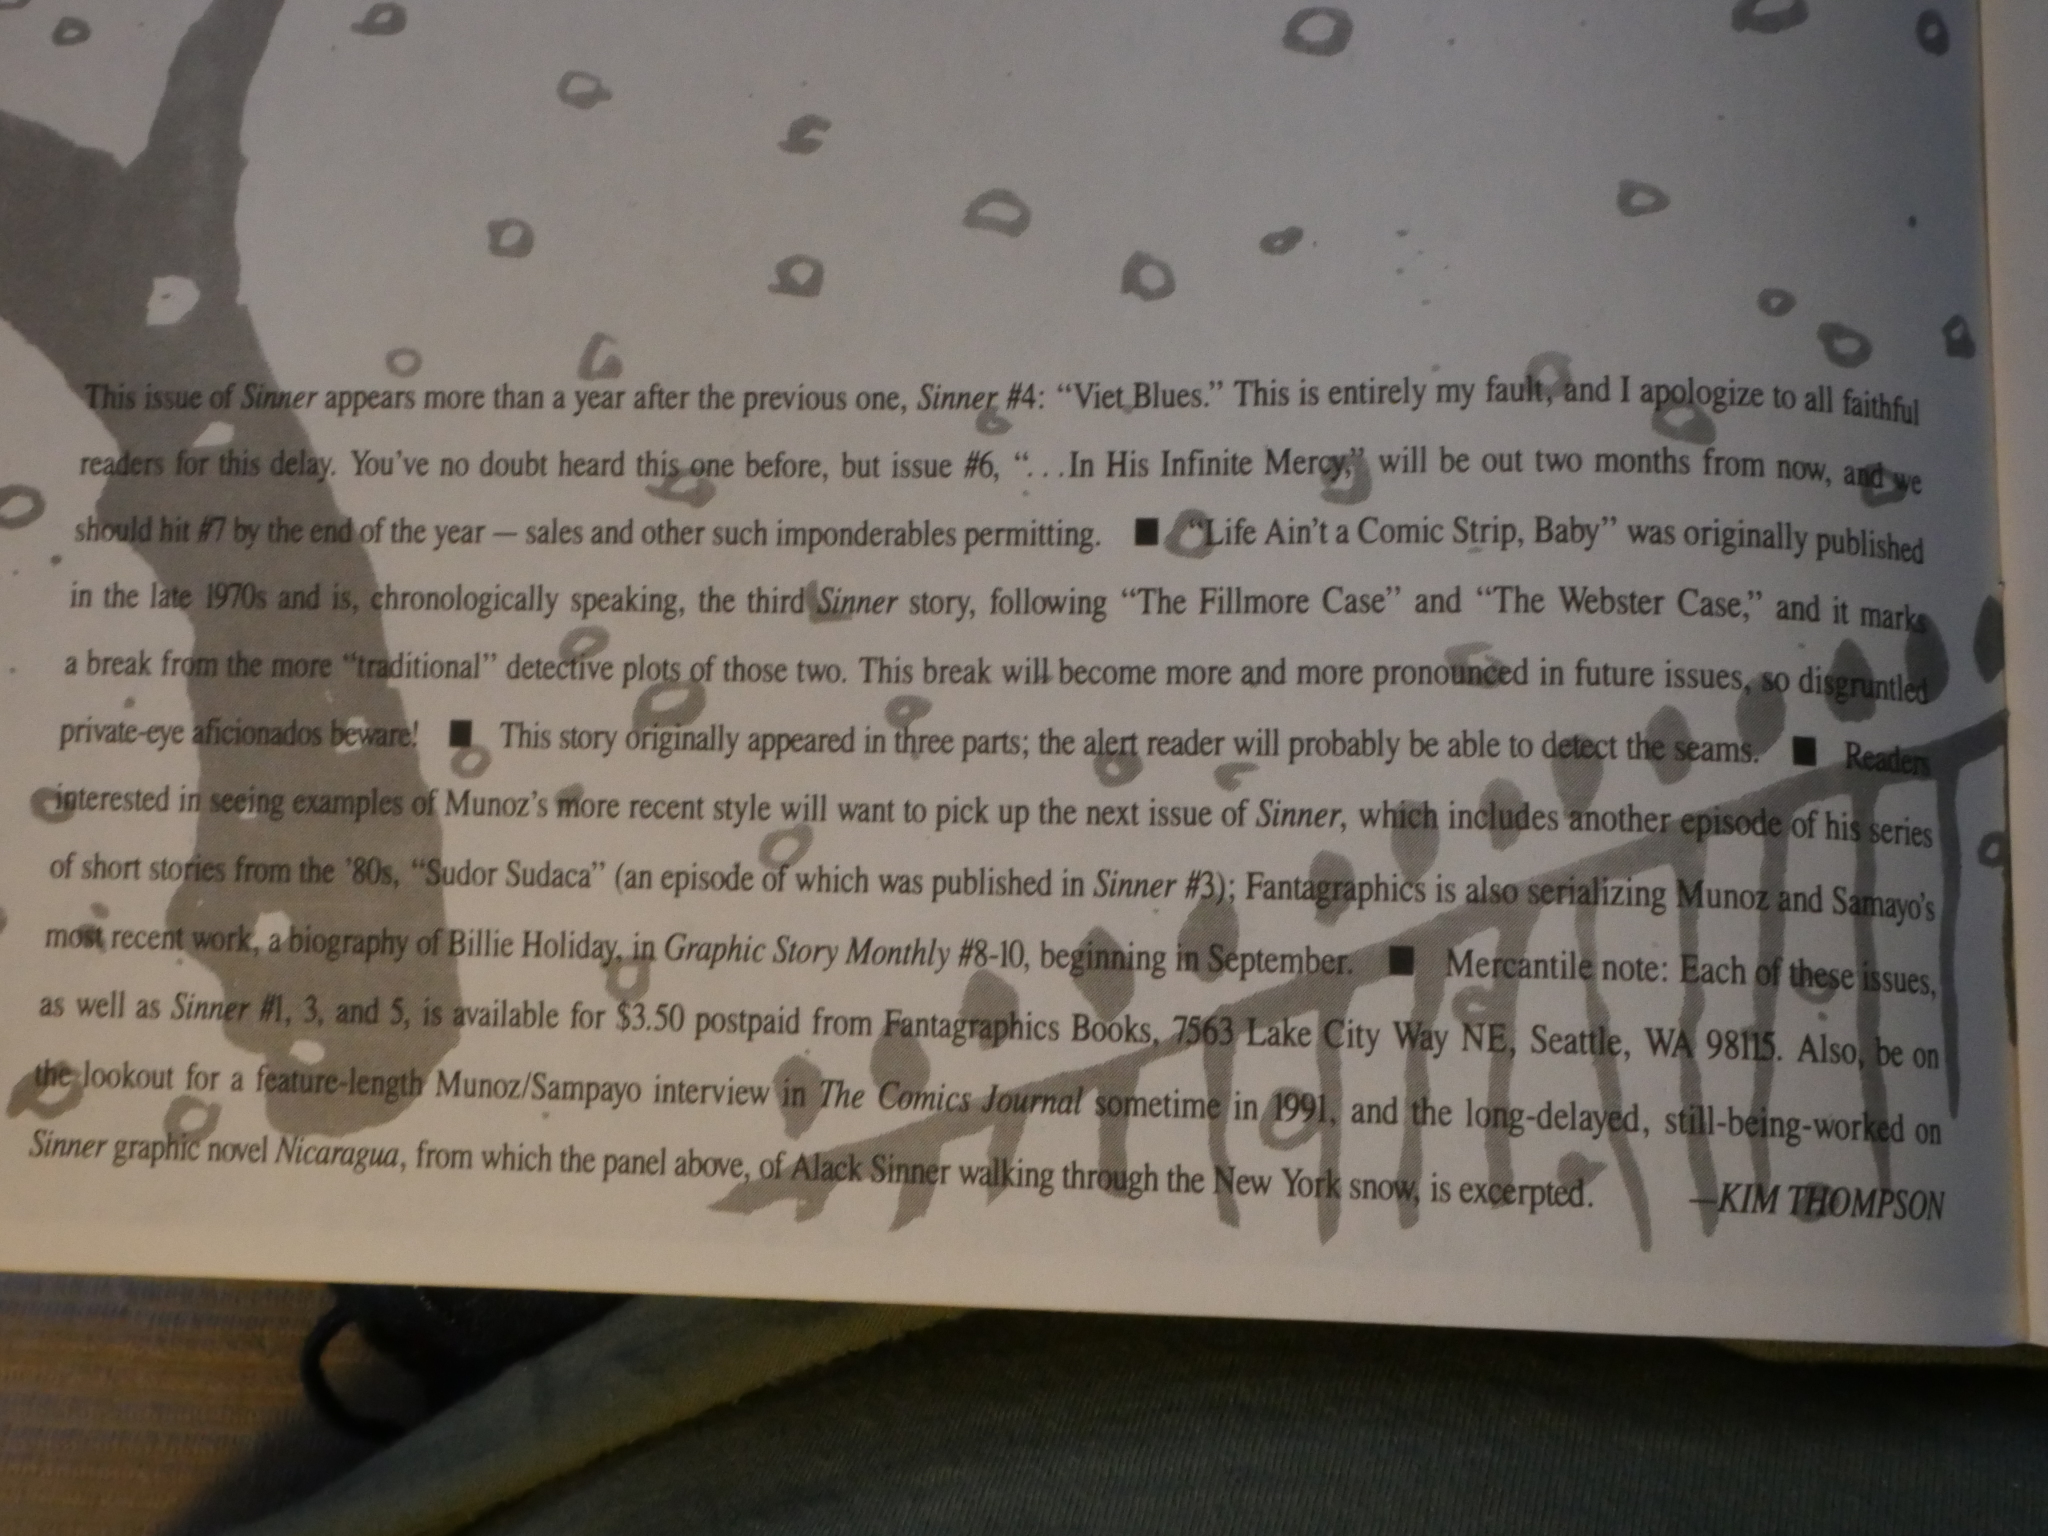 This issue of Sinner appears more than a year after the previous one, Sinner #4: “Viet Blues.” This is entirely my fault, and I apologize to all faithful
readers for this delay. You’ve no doubt heard this one before, but issue #6, “. . .In His Infinite Mercy,” will be out two months from now, and we
should hit #7 by the end of the year — sales and other such imponderables permitting. ■ “Life Ain’t a Comic Strip, Baby” was originally published
in the late 1970s and is, chronologically speaking, the third Sinner story, following “The Fillmore Case” and “The Webster Case,” and it marks
a break from the more “traditional” detective plots of those two. This break will become more and more pronounced in future issues, so disgruntled
private-eye aficionados beware! ■ This story originally appeared in three parts; the alert reader will probably be able to detect the seams. ■ Readers
interested in seeing examples of Munoz’s more recent style will want to pick up the next issue of Sinner, which includes another episode of his series
of short stories from the ’80s, “Sudor Sudaca” (an episode of which was published in Sinner #3); Fantagraphics is also serializing Munoz and Samayo’s
most recent work, a biography of Billie Holiday, in Graphic Story Monthly #8-10, beginning in September. ■ Mercantile note: Each of these issues,
as well as Sinner #1, 3, and 5, is available for $3.50 postpaid from Fantagraphics Books, 7563 Lake City Way NE, Seattle, WA 98115. Also, be on
the lookout for a feature-length Munoz/Sampayo interview in The Comics Journal sometime in 1991, and the long-delayed, still-being-worked on
Sinner graphic novel Nicaragua, from which the panel above, of Alack Sinner walking through the New York snow, is excerpted. —KIM THOMPSON